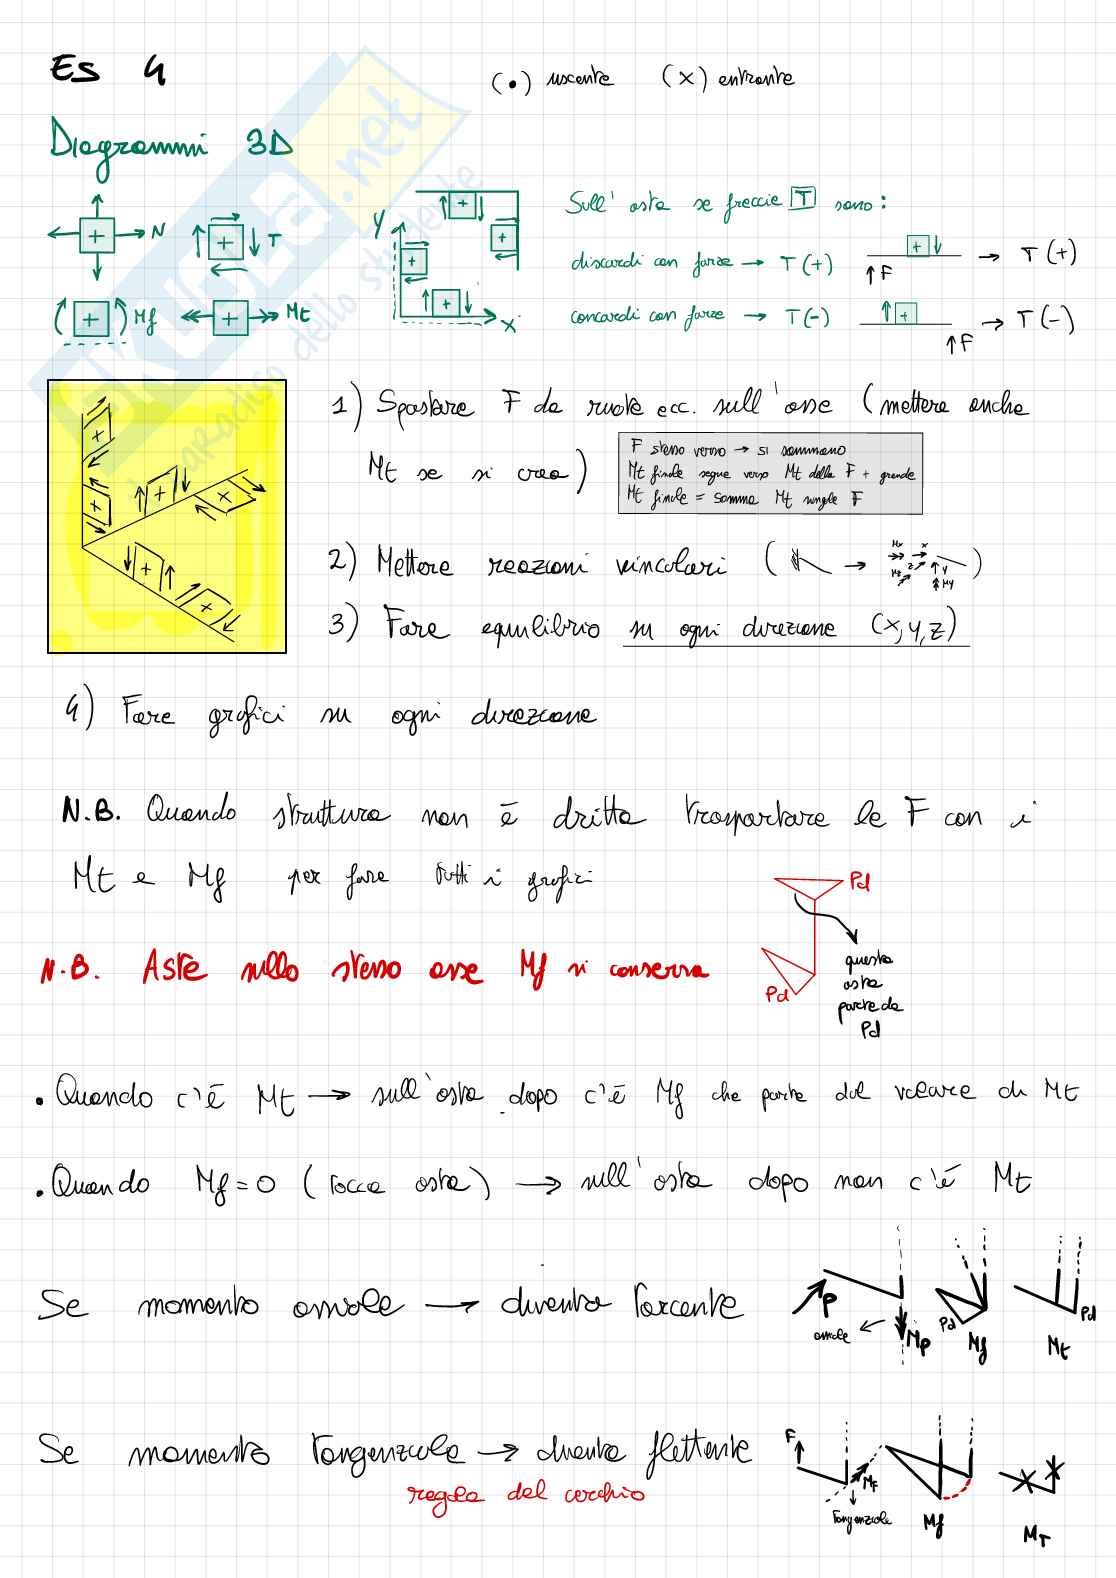 ES 4
(•) uscente (x) entrante
Diagrammi 3D
N T
Mf Mt
Y
X
Sull'asta se freccie T sono:
discordi con forze → T (+)
↑ F → T (+)
concordi con forze → T (-)
↑ F → T (-)
1) Spostare F da ruote ecc. sull'asse (mettere anche
Mt se si crea)
F stesso verso → si sommano
Mt finale segue verso Mt della F + grande
Mt finale = somma Mt singole F
2) Mettere reazioni vincolari ( → Mx x Mz z y My )
3) Fare equilibrio su ogni direzione (x, y, z)
4) Fare grafici su ogni direzione
N.B. Quando struttura non è dritta trasportare le F con i
Mt e Mf per fare tutti i grafici
Pd
N.B. Aste sullo stesso asse Mf si conserva
Pd
questa
asta
parte da
Pd
• Quando c'è Mt → sull'asta dopo c'è Mf che parte dal valore di Mt
• Quando Mf = 0 (tocca asta) → sull'asta dopo non c'è Mt
Se momento assiale → diventa torcente
P
assiale ← Mp
Pd Mf
Pd Mt
Se momento tangenziale → diventa flettente
regola del cerchio
F
MF
tangenziale
Mf
MT
skuola.net
paradiso dello studente